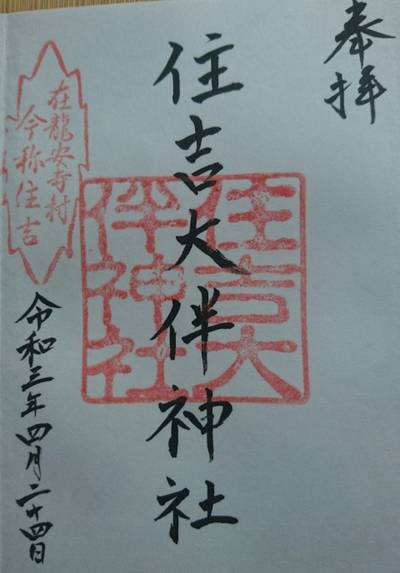 奉拝
住吉大伴神社
住吉大
伴神社
在龍安寺村
今称住吉
令和三年四月二十四日